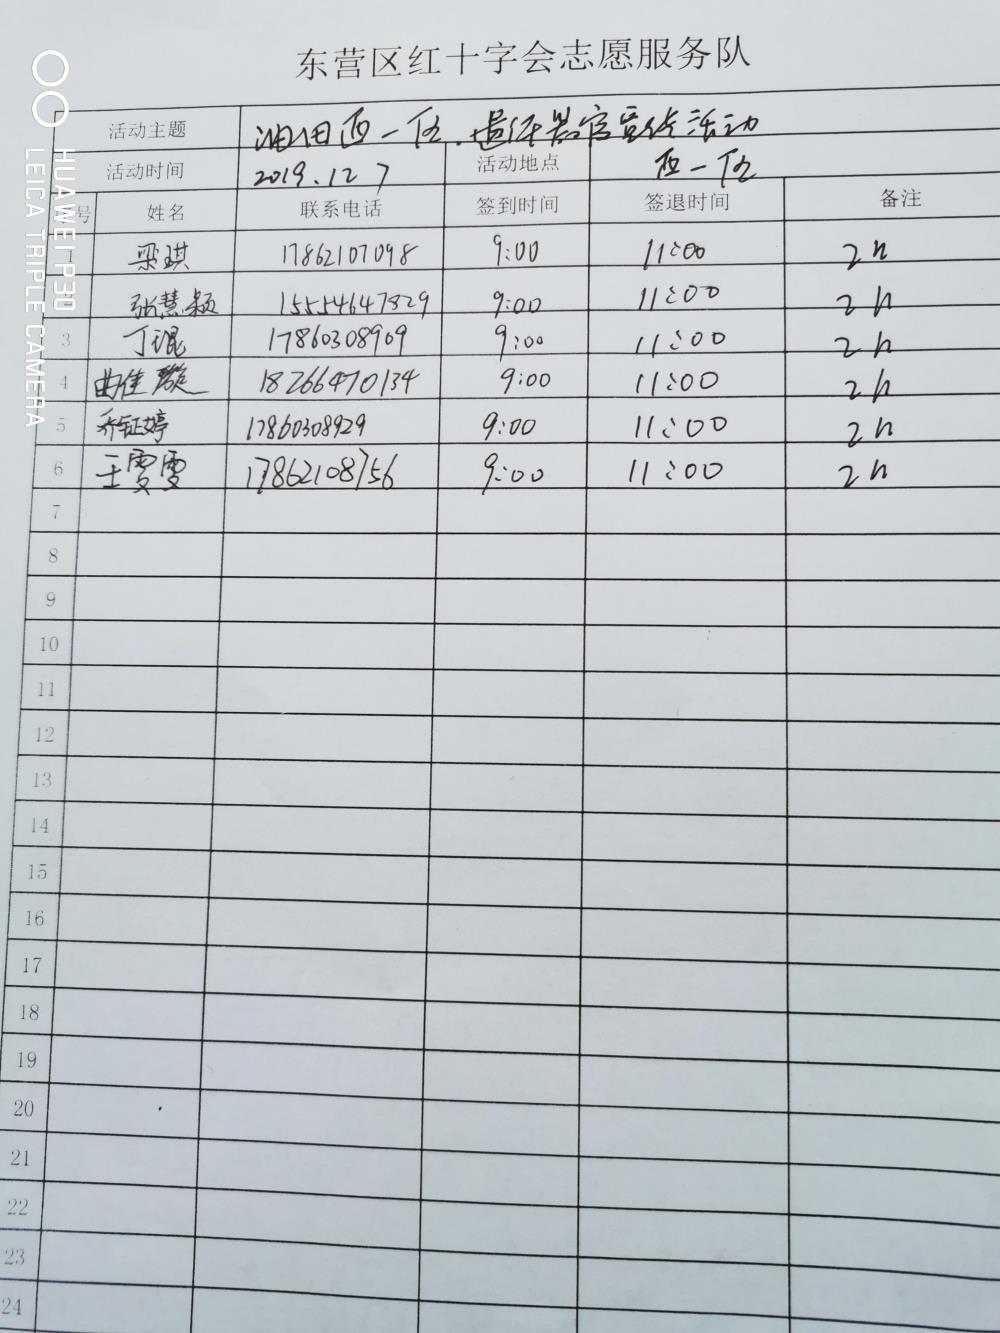 东营区红十字会志愿服务队
活动主题 油田西一 遗体器官宣传活动
活动时间 2019.12 7 活动地点 西一
号 姓名 联系电话 签到时间 签退时间 备注
1 梁琪 17862107098 9:00 11:00 2h
张慧颖 15554647829 9:00 11:00 2h
3 丁琨 17860308909 9:00 11:00 2h
4 曲佳璇 18266470134 9:00 11:00 2h
5 乔钰婷 17860308929 9:00 11:00 2h
6 王雯雯 17862108756 9:00 11:00 2h
7
8
9
10
11
12
13
14
15
16
17
18
19
20
21
22
23
24
HUAWEI P30
LEICA TRIPLE CAMERA